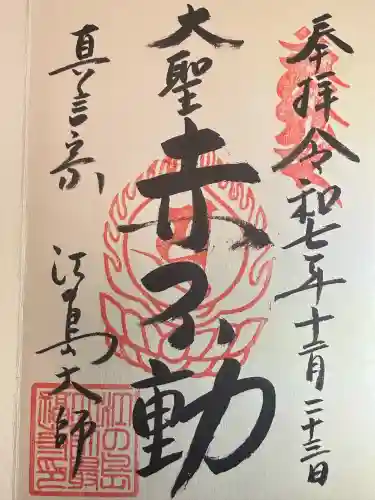 奉拝 令和七年十二月二十三日
大聖 赤不動
真言宗 江の島大師